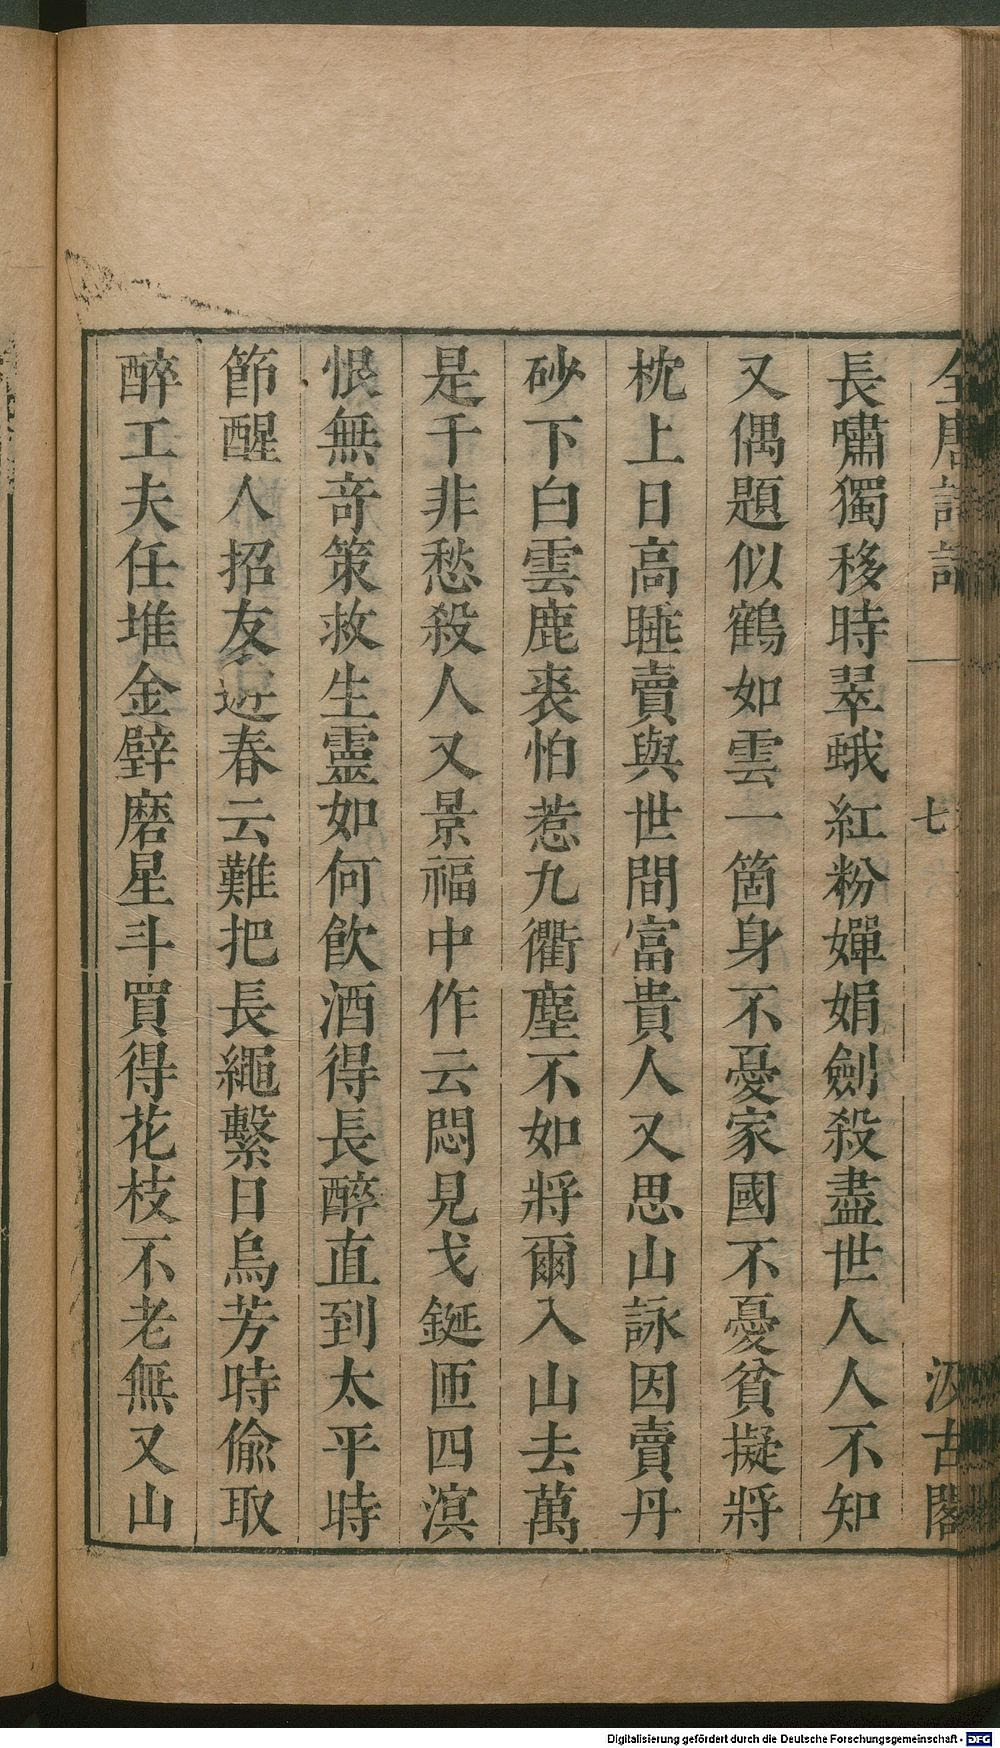 全唐詩話
七
汲古閣
長嘯獨移時翠蛾紅粉嬋娟劍殺盡世人人不知
又偶題似鶴如雲一箇身不憂家國不憂貧擬將
枕上日高睡賣與世間富貴人又思山詠因賣丹
砂下白雲鹿裘怕惹九衢塵不如將爾入山去萬
是千非愁殺人又景福中作云悶見戈鋋匝四溟
恨無竒策救生靈如何飲酒得長醉直到太平時
節醒人招友遊春云難把長繩繫日烏芳時偸取
醉工夫任堆金璧磨星斗買得花枝不老無又山
Digitalisierung gefördert durch die Deutsche Forschungsgemeinschaft - DFG